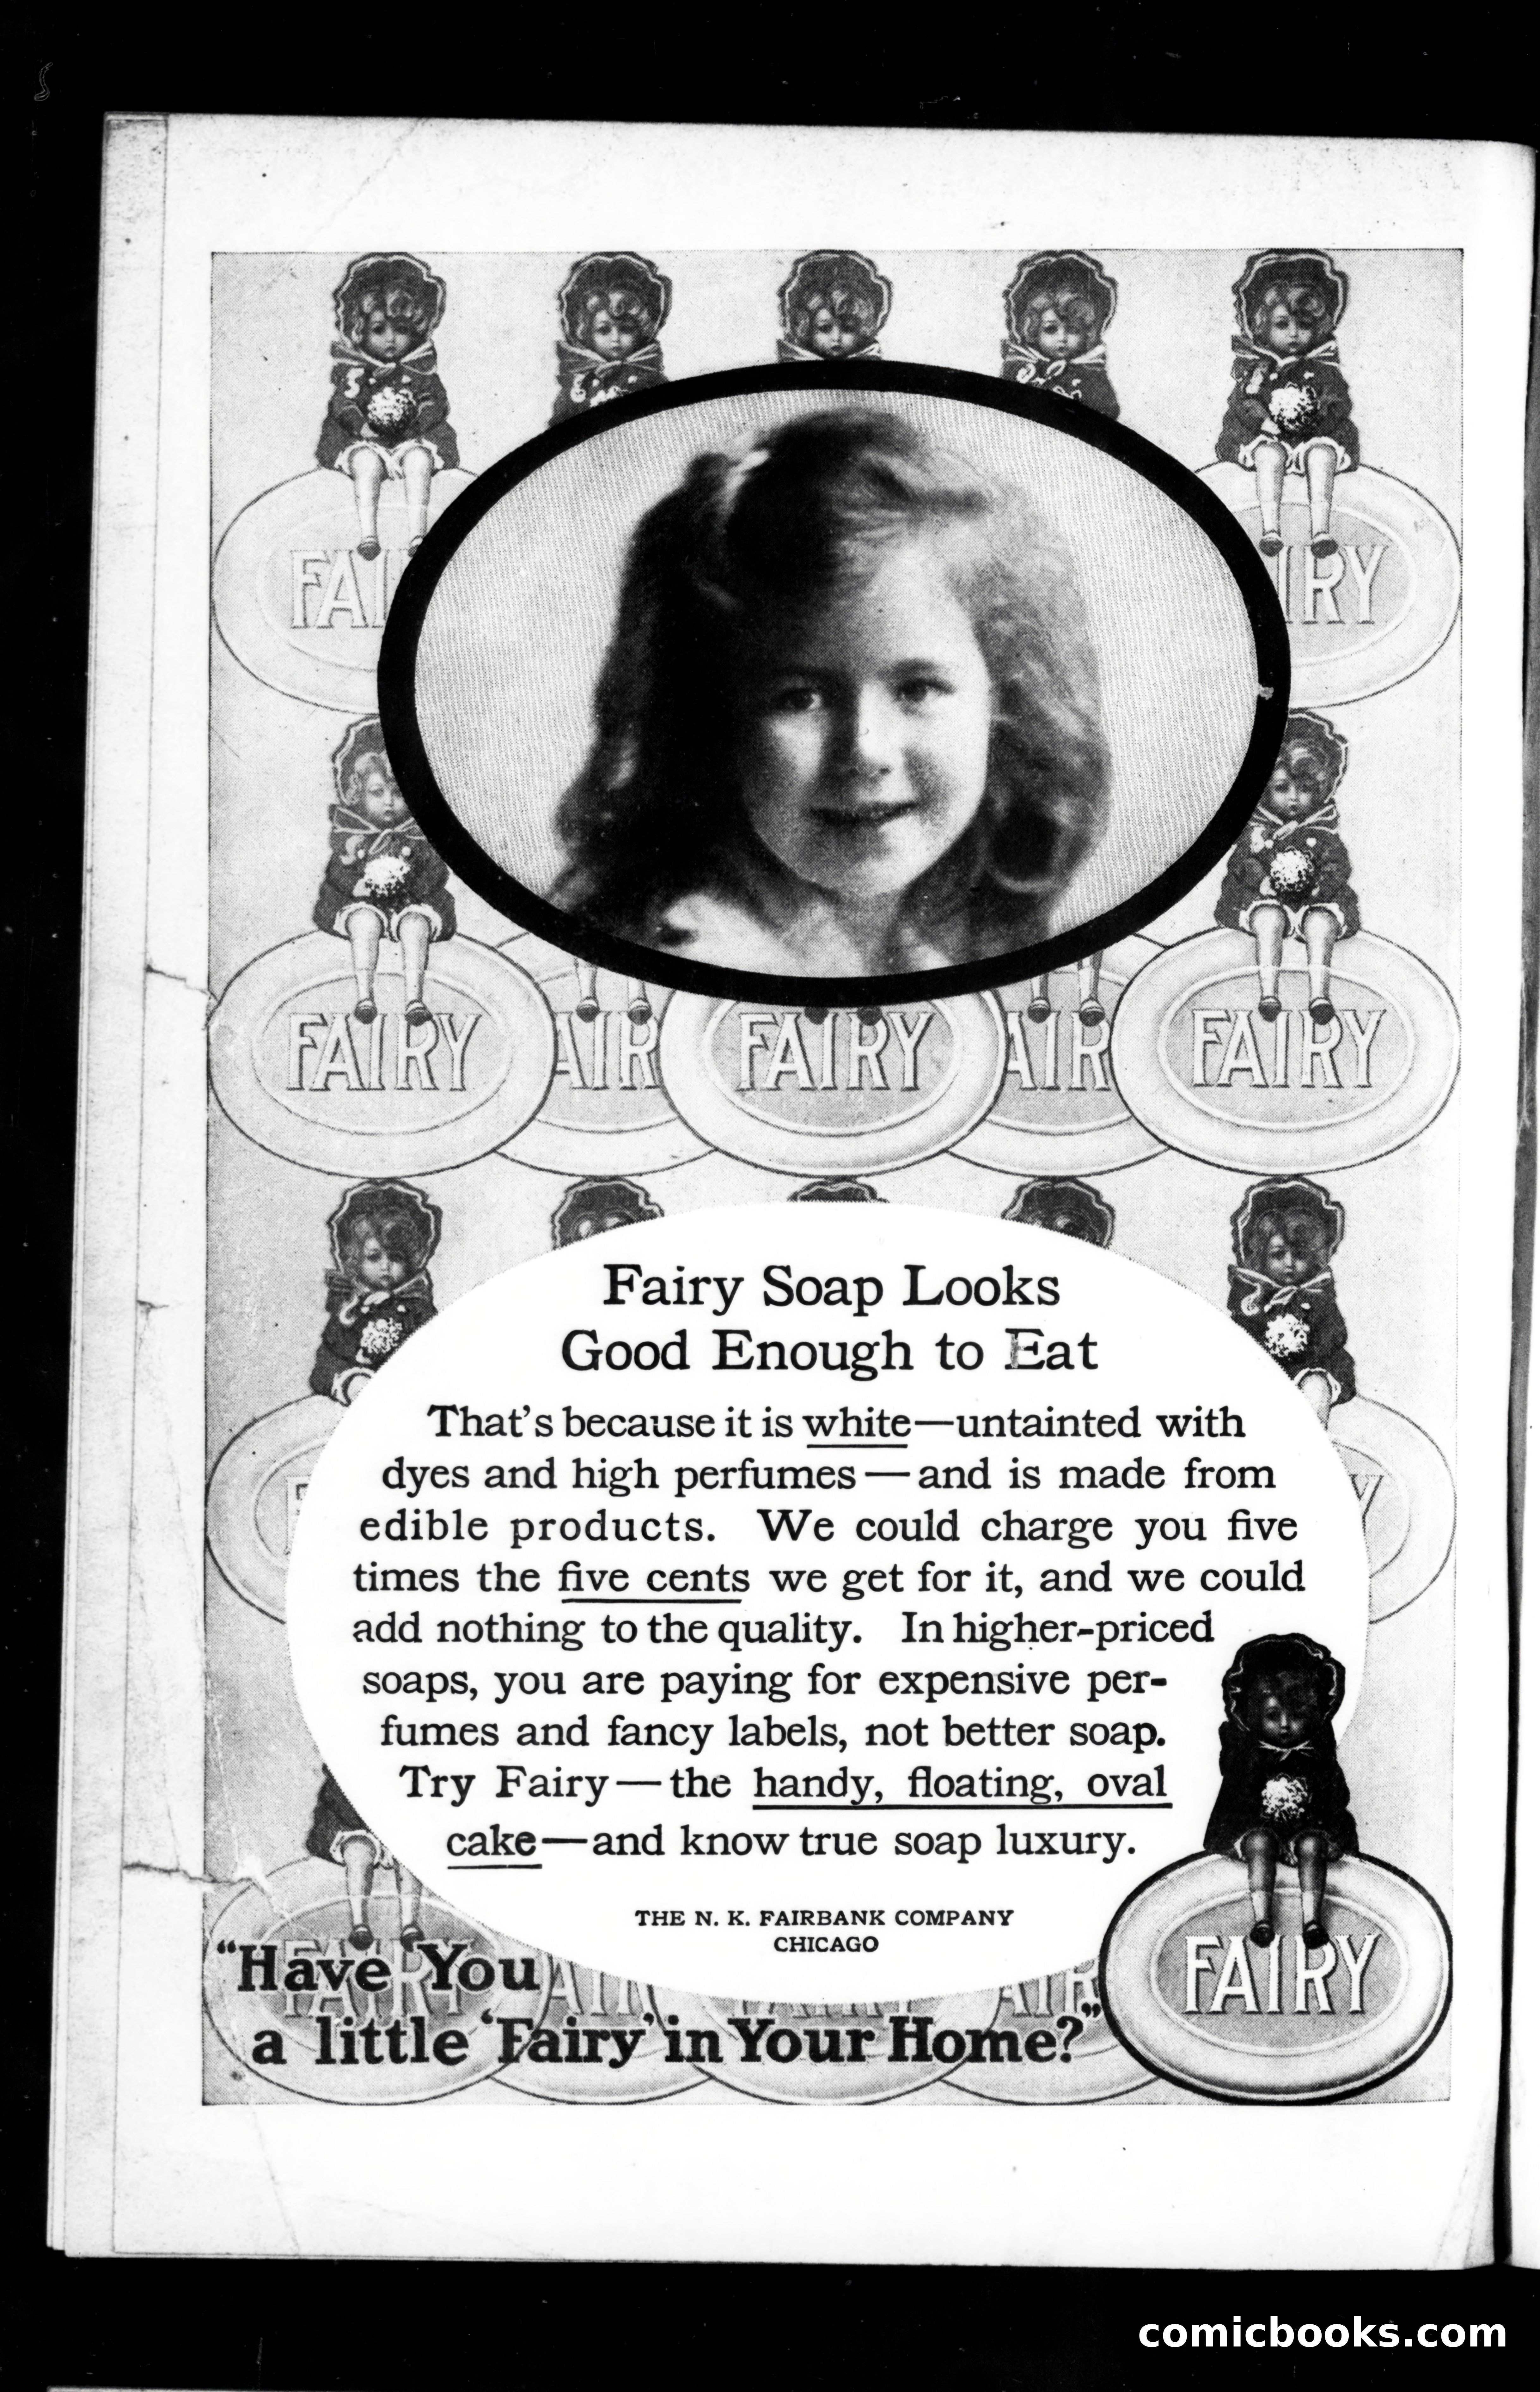 FAI
IRY
FAIRY
AIR
FAIRY
AIR
FAIRY
Fairy Soap Looks
Good Enough to Eat
That's because it is white—untainted with
dyes and high perfumes—and is made from
edible products. We could charge you five
times the five cents we get for it, and we could
add nothing to the quality. In higher-priced
soaps, you are paying for expensive per-
fumes and fancy labels, not better soap.
Try Fairy—the handy, floating, oval
cake—and know true soap luxury.
THE N. K. FAIRBANK COMPANY
CHICAGO
FAIRY
AIR
FAIRY
AIR
FAIRY
"Have You
a little 'Fairy' in Your Home?"
comicbooks.com